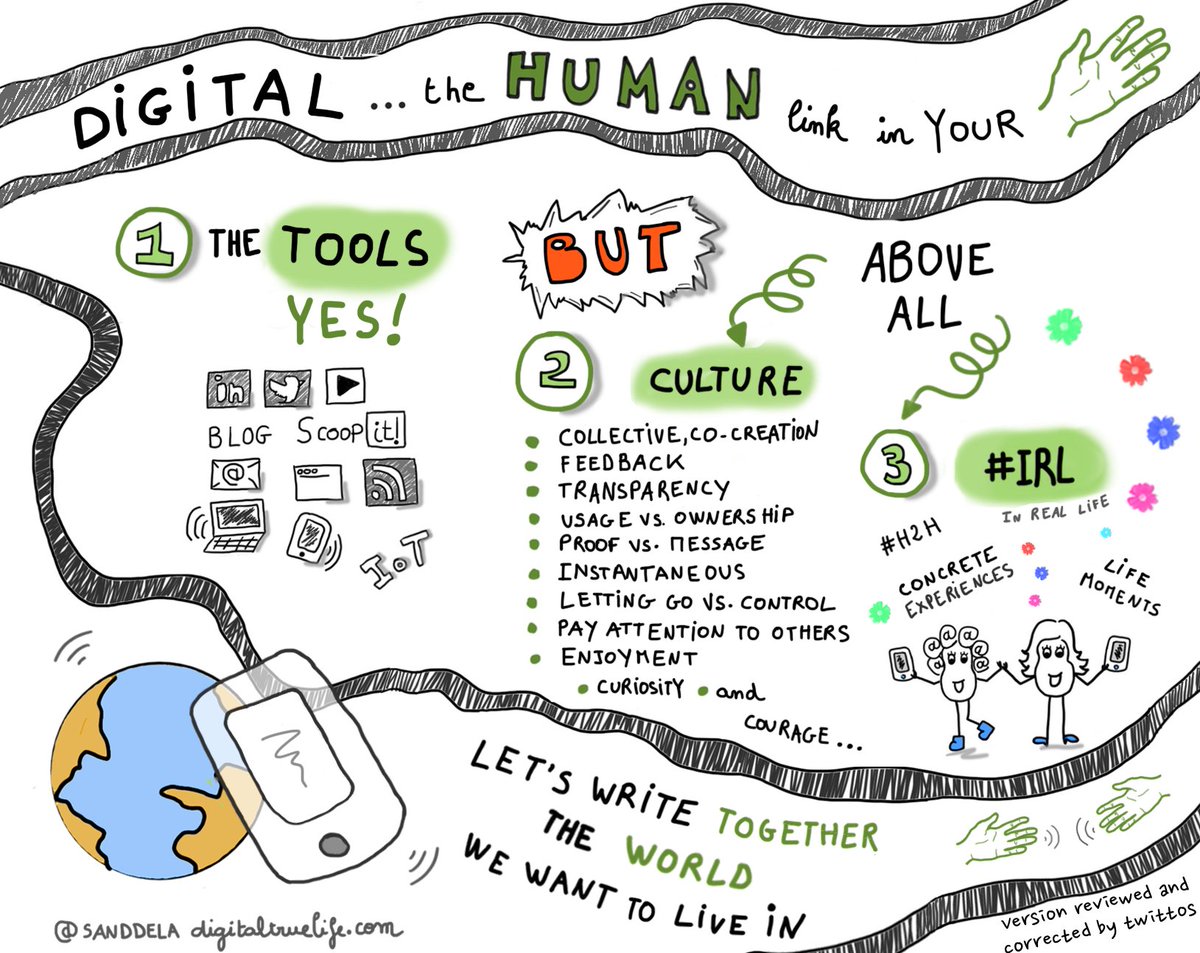 DiGiTAL ... the HUMAN link in YOUR
1 THE TOOLS
YES!
in
BLOG Scoop it!
@
IoT
BUT
2 CULTURE
COLLECTIVE, CO-CREATION
FEEDBACK
TRANSPARENCY
USAGE VS. OWNERSHIP
PROOF VS. MESSAGE
INSTANTANEOUS
LETTING GO VS. CONTROL
PAY ATTENTION TO OTHERS
ENJOYMENT
• CURIOSITY • and
COURAGE...
ABOVE
ALL
3 #IRL
IN REAL LIFE
#H2H
CONCRETE
EXPERIENCES
LIFE
MOMENTS
@@@@@@
LET'S WRITE TOGETHER
THE WORLD
WE WANT TO LIVE IN
@SANDDELA digitaltruelife.com
version reviewed and
corrected by twittos